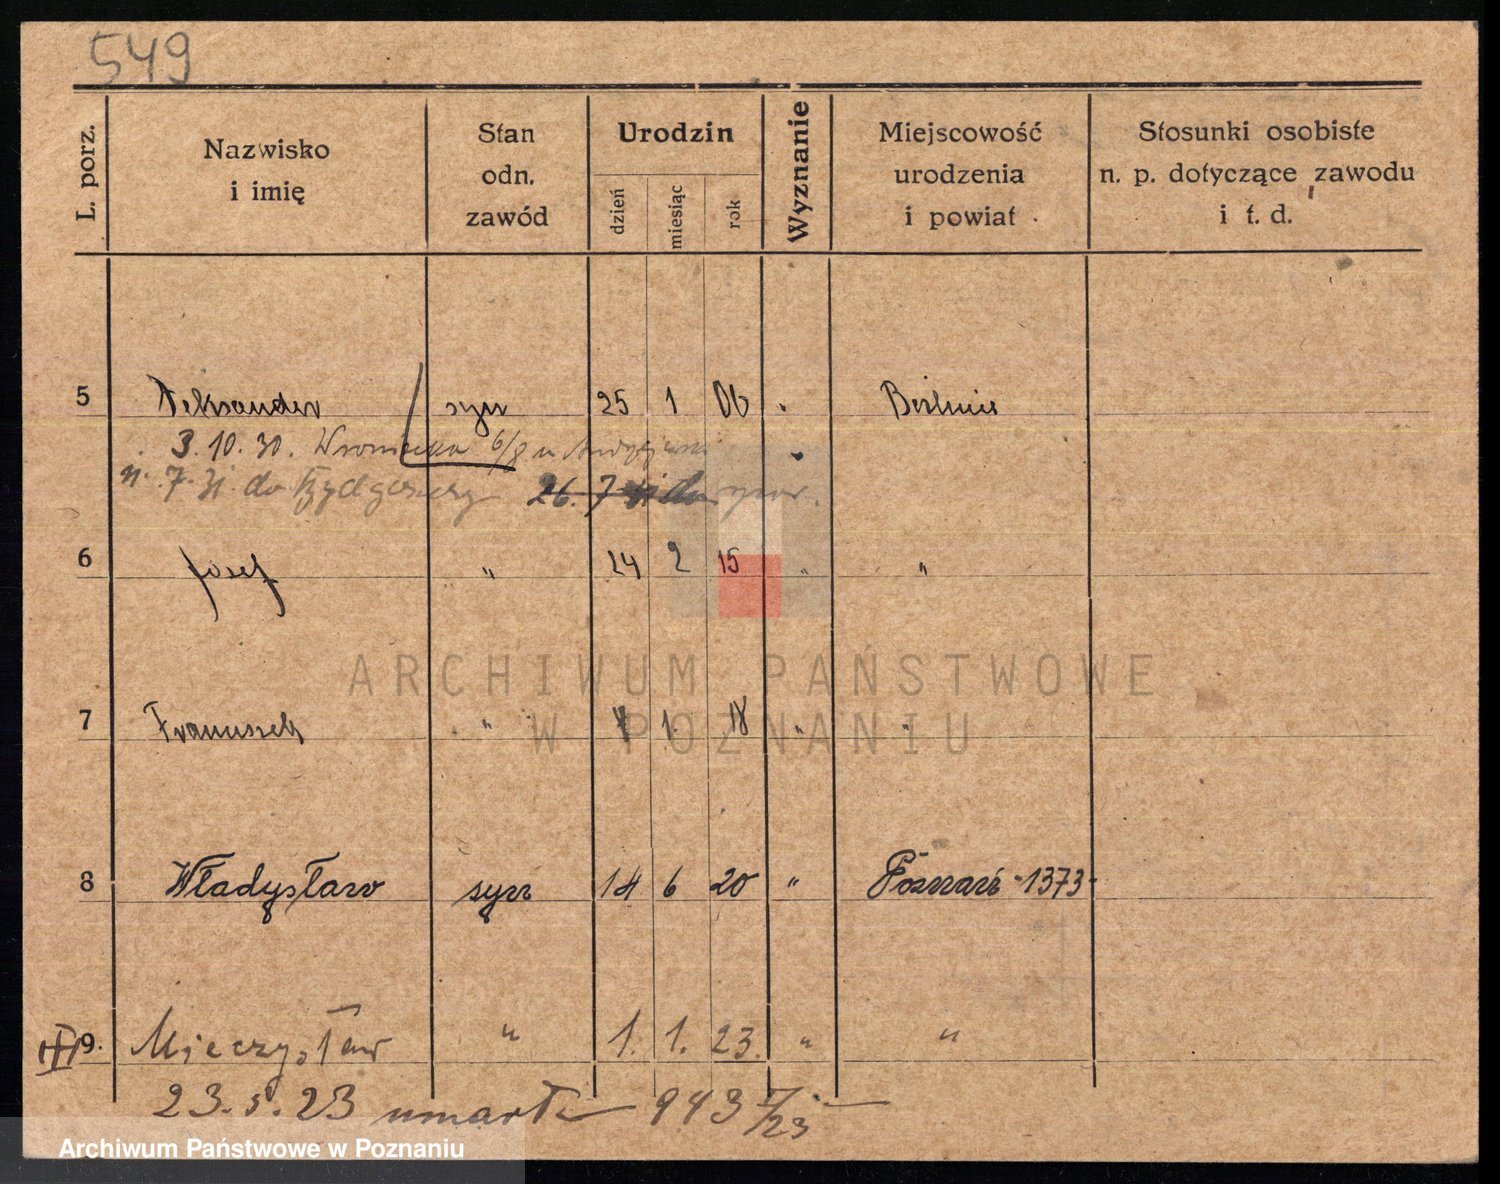 549
L. porz.
Nazwisko
i imię
Stan
odn.
zawód
Urodzin
dzień
miesiąc
rok
Wyznanie
Miejscowość
urodzenia
i powiat
Stosunki osobiste
n. p. dotyczące zawodu
i t. d.
5 Aleksander syn 25 1 06 " Berlinie
3.10.30. Wroniecka 6/8 u
7. 31. do Bydgoszczy 26. 7 31 do
6 Josef " 24 2 15 " "
ARCHIWUM PAŃSTWOWE
W POZNANIU
7 Franciszek " 1 1. 18 " "
8 Władysław syn 14 6 20 " Poznań -1373-
9. Mieczysław " 1. 1. 23. " "
23.5.23 umarł 943 /23
Archiwum Państwowe w Poznaniu